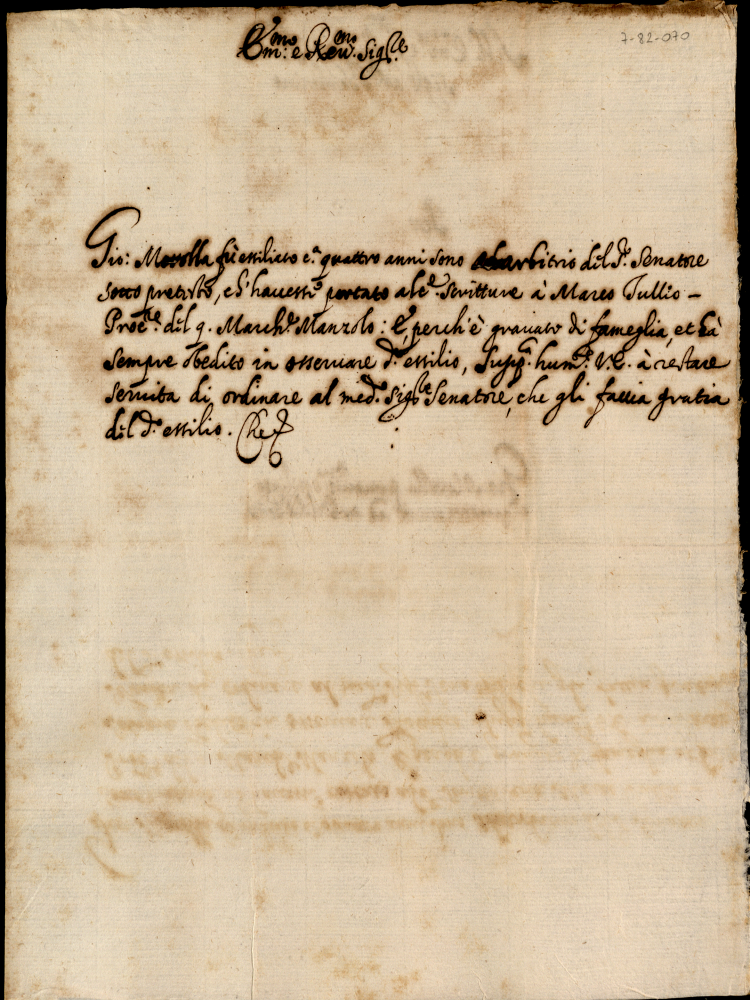 7-82-070
Em:mo e Reu.mo Sig.re
Gio: Morolla fù essiliato c.a quattro anni sono ad arbitrio del S.r Senatore
sotto pretesto, ch'hauesse portato alc.e Scritture à Marco Tullio –
Proc.re del q. March.e Manzolo: E, perch'è grauato di fameglia, et hà
sempre obedito in osseruare d.o essilio, Supp.a hum.te V.E. à restare
seruita di ordinare al med.o Sig.re Senatore, che gli faccia gratia
del d.o essilio. Che